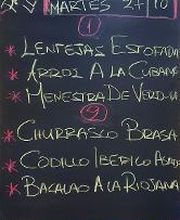 Y MARTES 27/10
1
* LENTEJAS ESTOFADA
* ARROZ A LA CUBANA
* MENESTRA DE VERDU
2
* CHURRASCO BRASA
* CODILLO IBERICO ASADO
* BACALAO A LA RIOJANA